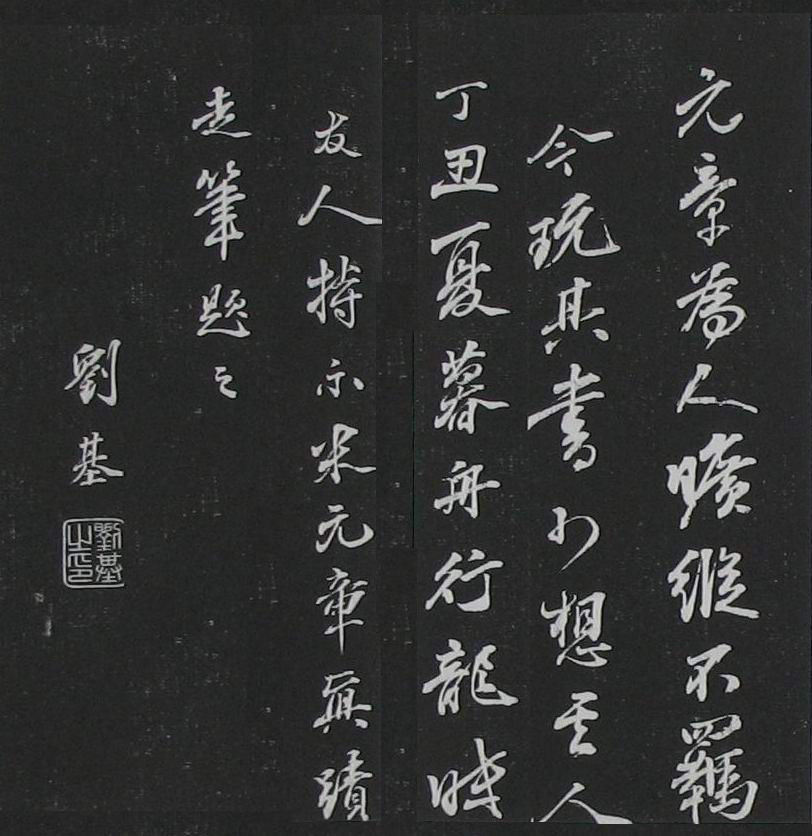 元章為人曠縱不羈
今玩其書可想其人
丁丑夏暮舟行龍
友人持示米元章真蹟
走筆題之
劉基
劉基之印